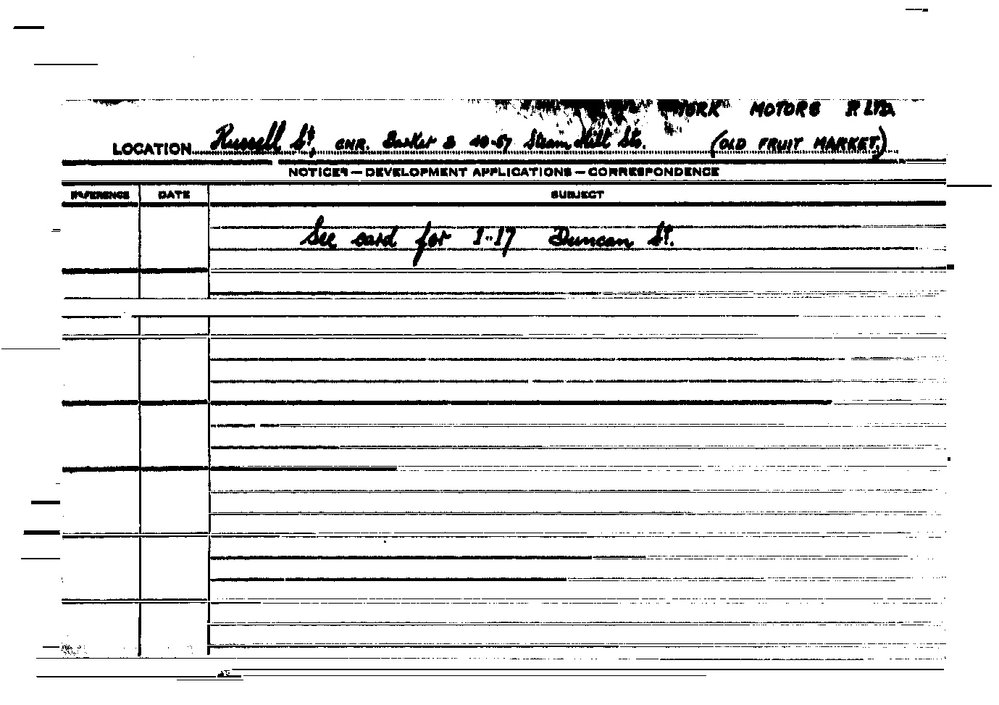 YORK MOTORS P. LTD.
LOCATION Russell St, CNR. Barker & 49-57 Steam Mill Sts. (OLD FRUIT MARKET.)
NOTICES — DEVELOPMENT APPLICATIONS — CORRESPONDENCE
REFERENCE DATE SUBJECT
See card for 1-17 Duncan St.